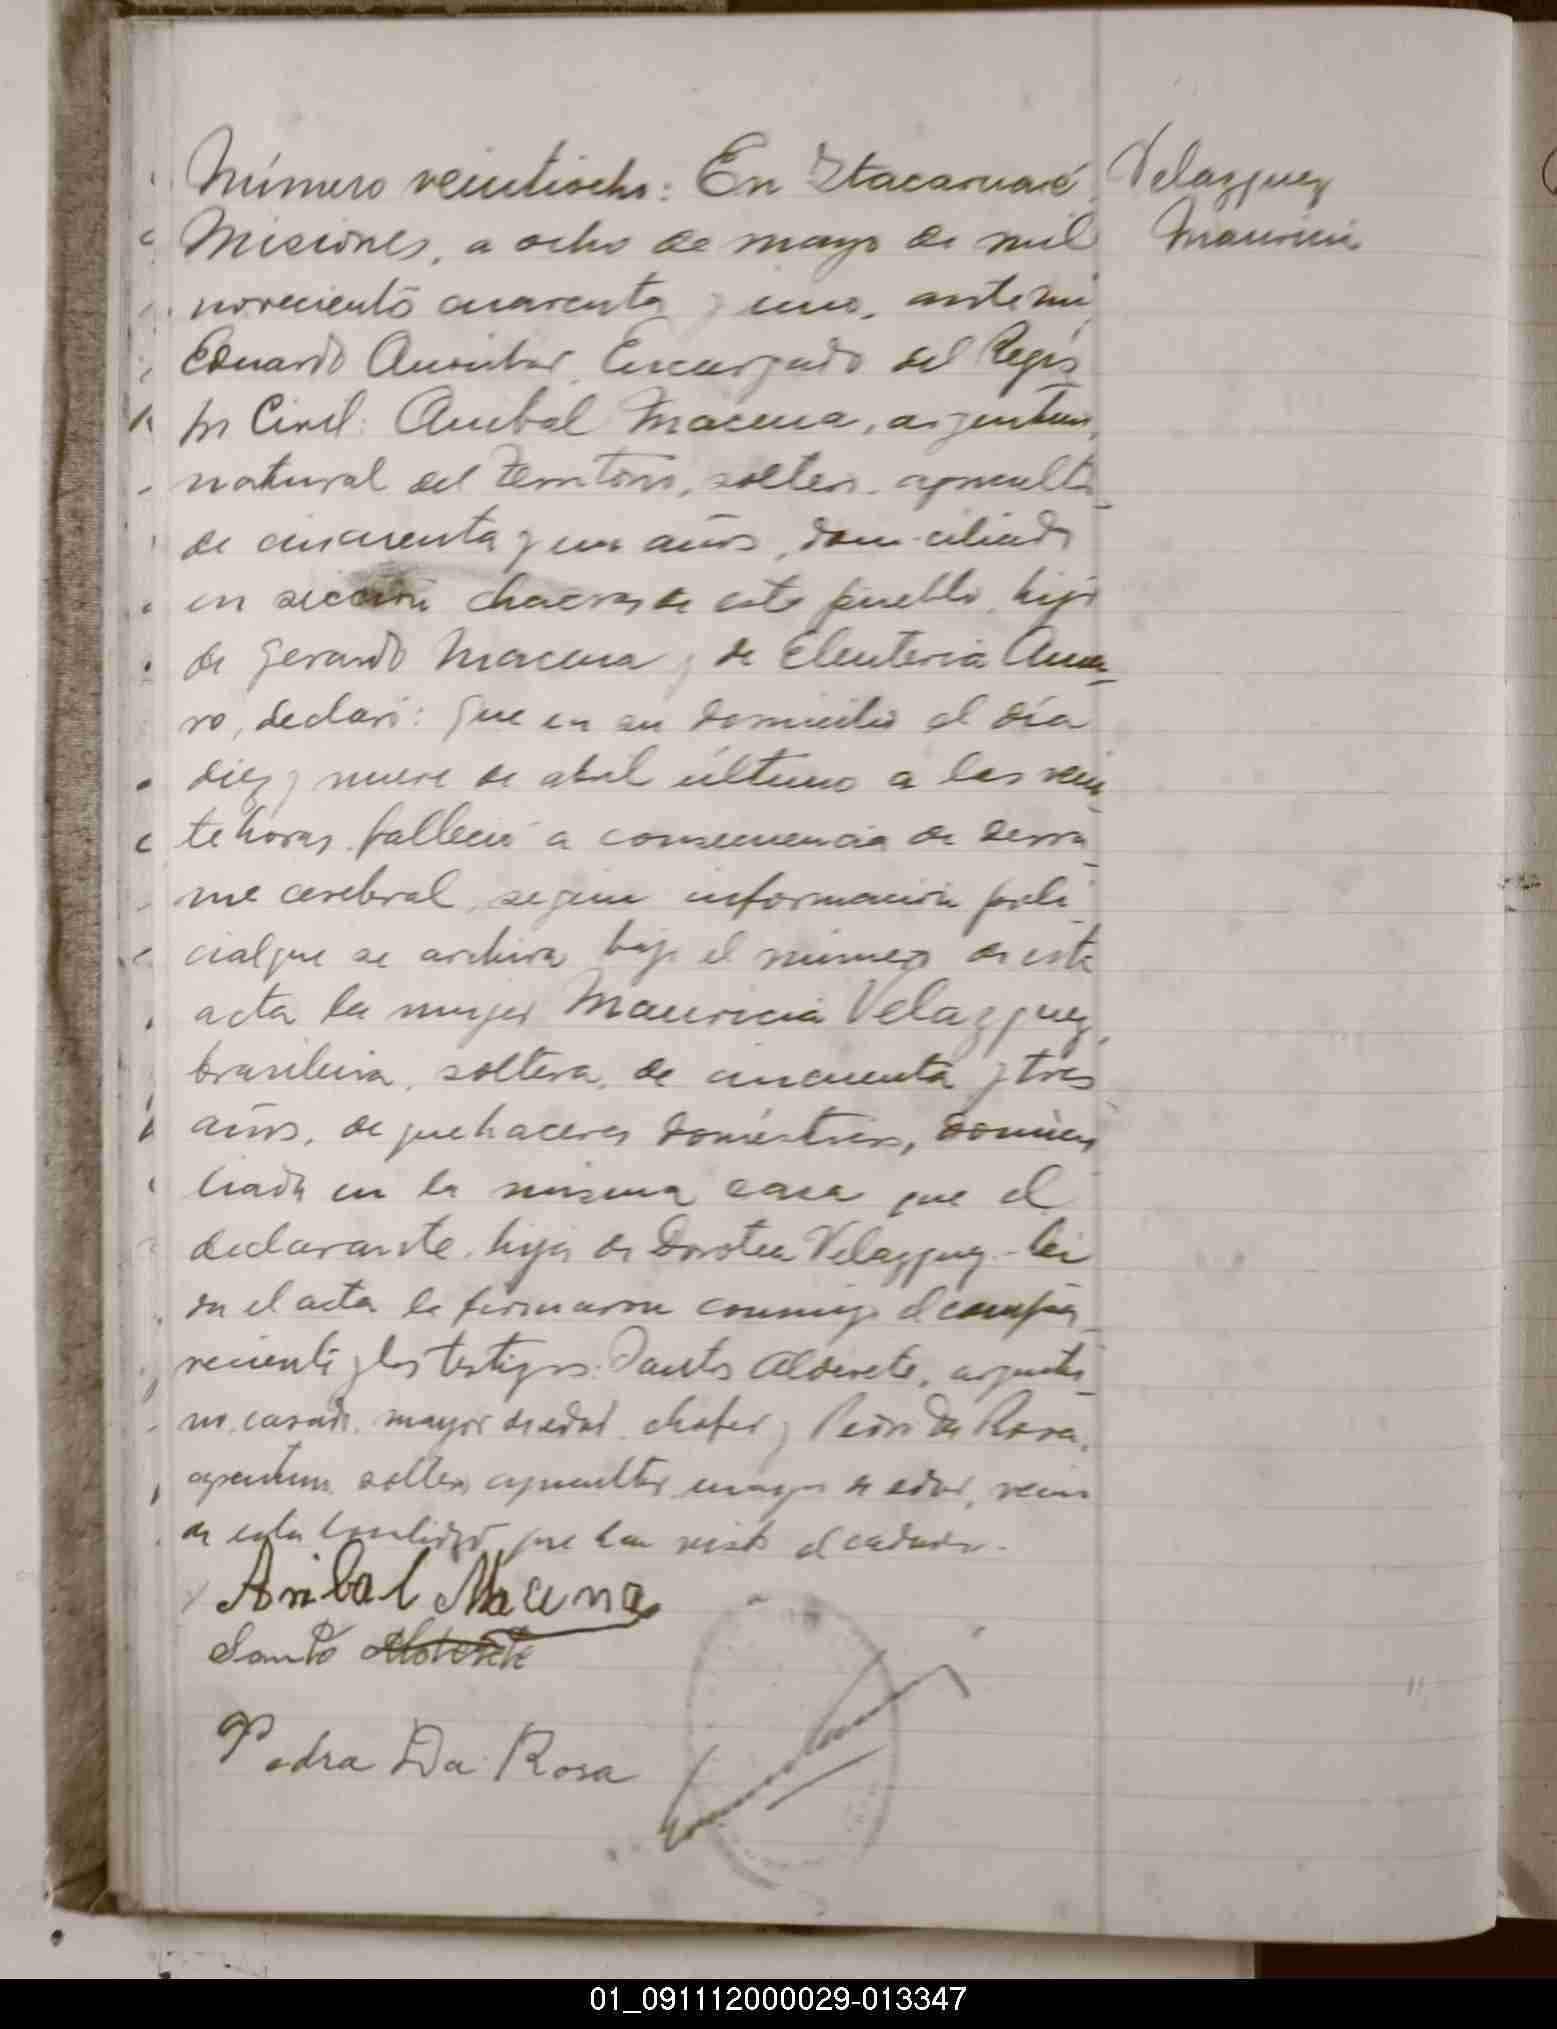 Número veintiocho: En Itacaruaré
Velazquez
Misiones, a ocho de mayo de mil
Mauricia
novecientos cuarenta y uno, ante mí
Eduardo Encargado del Regis
tro Civil: Anibal Macena, argentino,
natural del Territorio, soltero, agricultor
de cincuenta y un años, domiciliado
en sección chacras de este pueblo, hijo
de Gerardo Macena y de Eleuteria Ama-
ro, declaró: que en su domicilio el día
diez y nueve de abril último a las vein-
te horas falleció a consecuencia de derra-
me cerebral, según información poli-
cial que se archiva bajo el número de esta
acta la mujer Mauricia Velazquez,
brasilera, soltera, de cincuenta y tres
años, de quehaceres domésticos, domici-
liada en la misma casa que el
declarante, hija de Dorotea Velazquez - Lei-
da el acta la firmaron conmigo el compa-
reciente y los testigos: Santos Alderete, argenti-
no, casado, mayor de edad, chofer y Pedro Da Rosa,
argentino, soltero, agricultor, mayor de edad, vecinos
de esta localidad que han visto el cadáver.
Anibal Macena
Santo Alderete
Pedra Da Rosa
01_091112000029-013347